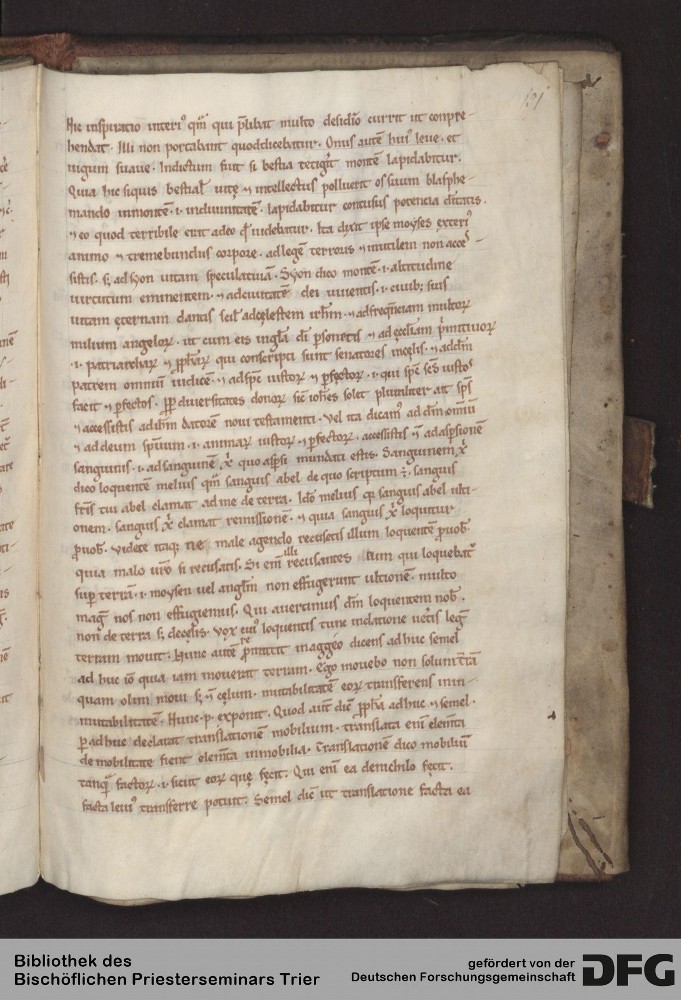 131
Hic inspiratio interi⁹ qm̄ qui p̄libat multo desidīo currit ut conpre-
hendat. Illi non portabant quod dicebatur. Onus autē hui⁹ leue. et
iugum suaue. Indictum fuit si bestia tetigit montē lapidabitur.
Quia hic siquis bestial' uitę ⁊ intellectus polluerit os suum blasphe-
mando in montē .i. in diuinitatē. lapidabitur contusus potencia diuitatis.
⁊ eo quod terribile erit adeo qd' uidebatur. Ita dixit ipse moyses exteri⁹
animo ⁊ tremebundus corpore. ad legē terroris ⁊ inutilem non acces-
sistis. s; ad syon uitam speculatiuā. Syon dico montē .i. altitudine
uirtutum eminentem. ⁊ ad ciuitatē dei uiuentis .i. ciuib; suis
uitam ęternam dantis scil' ad cęlestem irl'm. ⁊ ad frequenciam multoꝝ
milium angeloꝝ. ut cum eis in gl'a di personetis ⁊ ad ęccl'iam primitiuoꝝ
.i. patriarchaꝝ ⁊ ꝓphaꝝ qui conscripti sunt senatores in cęlis. ⁊ ad dm̄
patrem omniū iudicē. ⁊ ad spc̄ iustoꝝ ⁊ ꝑfectoꝝ .i. qui spc̄ scm̄ iustos
facit ⁊ perfectos. ꝓp diuersitates donoꝝ sic iohes solet pluraliter ait sps
⁊ accessistis ad ihm datorē noui testamenti. Vel ita dicam⁹ ad dm̄ omiū
⁊ ad deum spirituum .i. animaꝝ iustoꝝ ⁊ perfectoꝝ. accessistis ⁊ ad aspersionē
sanguinis .i. ad sanguinē xp̄i quo aspersi mundati estis. Sanguinem xp̄i
dico loquentē melius qm̄ sanguis abel de quo scriptum ÷. sanguis
fr̄is tui abel clamat ad me de terra. Ido melius qa sanguis abel ulti-
onem. sanguis xp̄i clamat remissionē. ⁊ quia sanguis xp̄i loquitur
ꝓ uob. Videte itaq; ne male agendo recusetis illum loquentē ꝓ uob'.
quia malo uro si recusatis. Si eni illi recusantes eum qui loquebat'
sup terrā .i. moysen uel angl'm non effugerunt ultionē. multo
mag' nos non effugiemus. Qui auertimus dm̄ loquentem nob'.
non de terra s; de cęlis. Vox cui⁹ loquentis tunc in datione uet'is leg'
terram mouit. Hunc autē repromittit in aggeo dicens ad huc semel
ad huc iō quia iam mouerat terram. Ego mouebo non solum t'rā
quam olim moui s; ⁊ cęlum. mutabilitatē eoꝝ transferens in in-
mutabilitatē. Hunc .p. exponit. Quod aut diē ꝓpha ad huc ⁊ semel.
ꝑ ad huc declarat translationē mobilium. translata eni elem̄ta
de mobilitate fient elem̄ta inmobilia. Translationē dico mobiliū
tanq̄ factoꝝ .i. sicut eoꝝ quę fęcit. Qui eni ea de nichilo fęcit.
facta leui⁹ transferre potuit. Semel diē ut translatione facta ea
Bibliothek des
Bischöflichen Priesterseminars Trier
gefördert von der
Deutschen Forschungsgemeinschaft
DFG